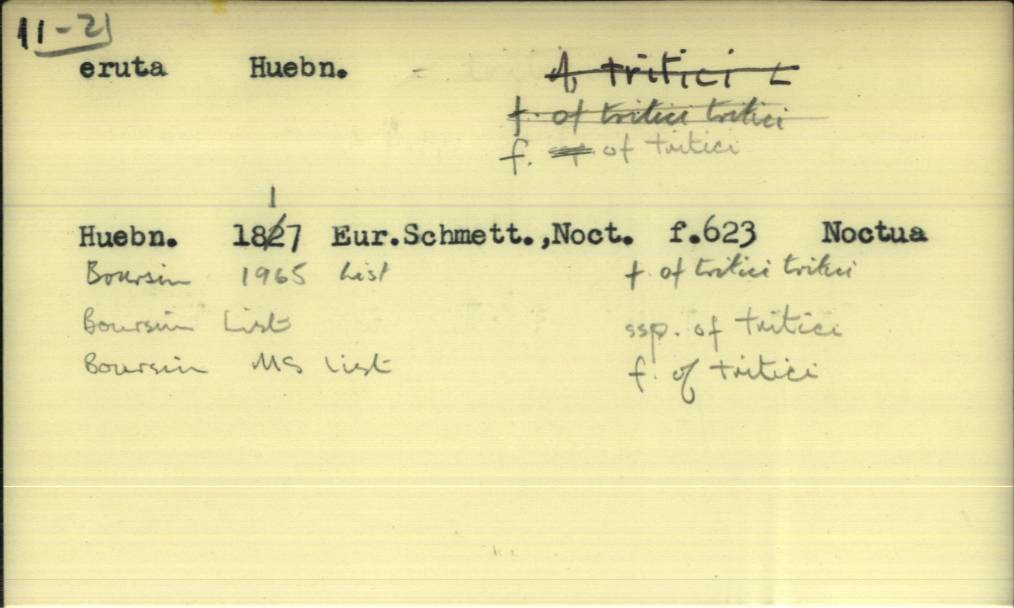 11-2
eruta Huebn. = A tritici L
f. of tritici tritici
f. ssp. of tritici
1
Huebn. 1827 Eur.Schmett.,Noct. f.623 Noctua
Boursin 1965 List f. of tritici tritici
Boursin List ssp. of tritici
Boursin MS List f. of tritici